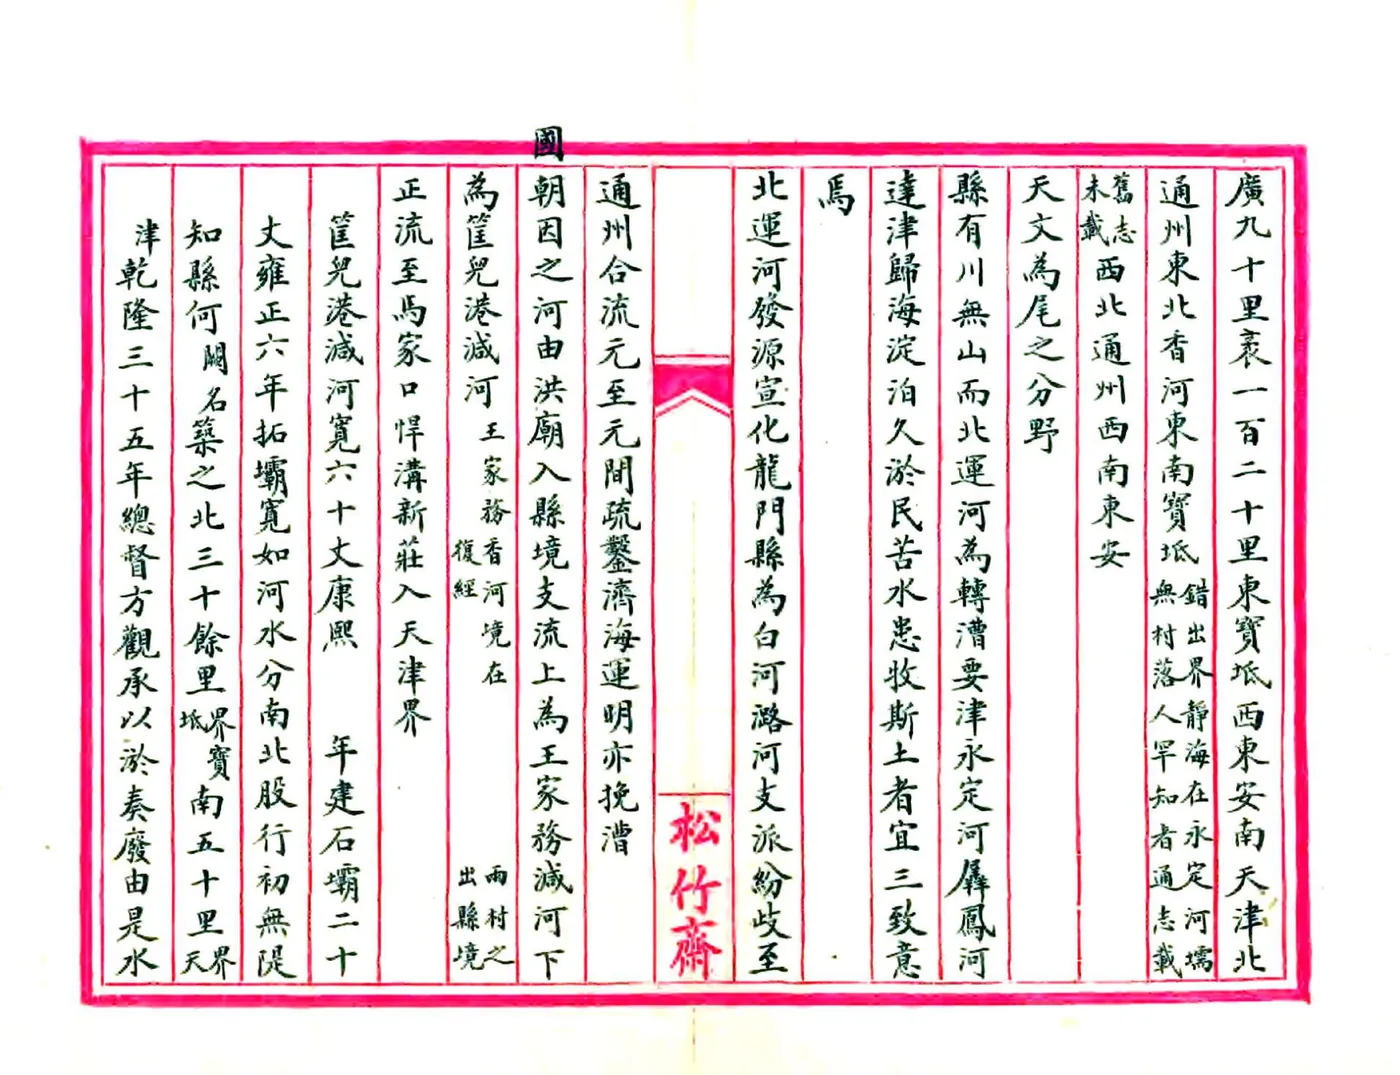 廣九十里袤一百二十里東寶坻西東安南天津北
通州東北香河東南寶坻錯出界靜海在永定河壖無村落人罕知者通志載
舊志未載西北通州西南東安
天文為尾之分野
縣有川無山而北運河為轉漕要津永定河曁鳳河
達津歸海淀泊久淤民苦水患牧斯土者宜三致意
焉
北運河發源宣化龍門縣為白河潞河支派紛歧至
松竹齋
通州合流元至元間疏鑿濟海運明亦挽漕
國朝因之河由洪廟入縣境支流上為王家務減河下
為筐兒港減河王家務香河境在復經兩村之出縣境
正流至馬家口悍溝新莊入天津界
筐兒港減河寬六十丈康熙 年建石壩二十
丈雍正六年拓壩寬如河水分南北股行初無隄
知縣何闕名築之北三十餘里界寶坻南五十里界天
津乾隆三十五年總督方觀承以淤奏廢由是水